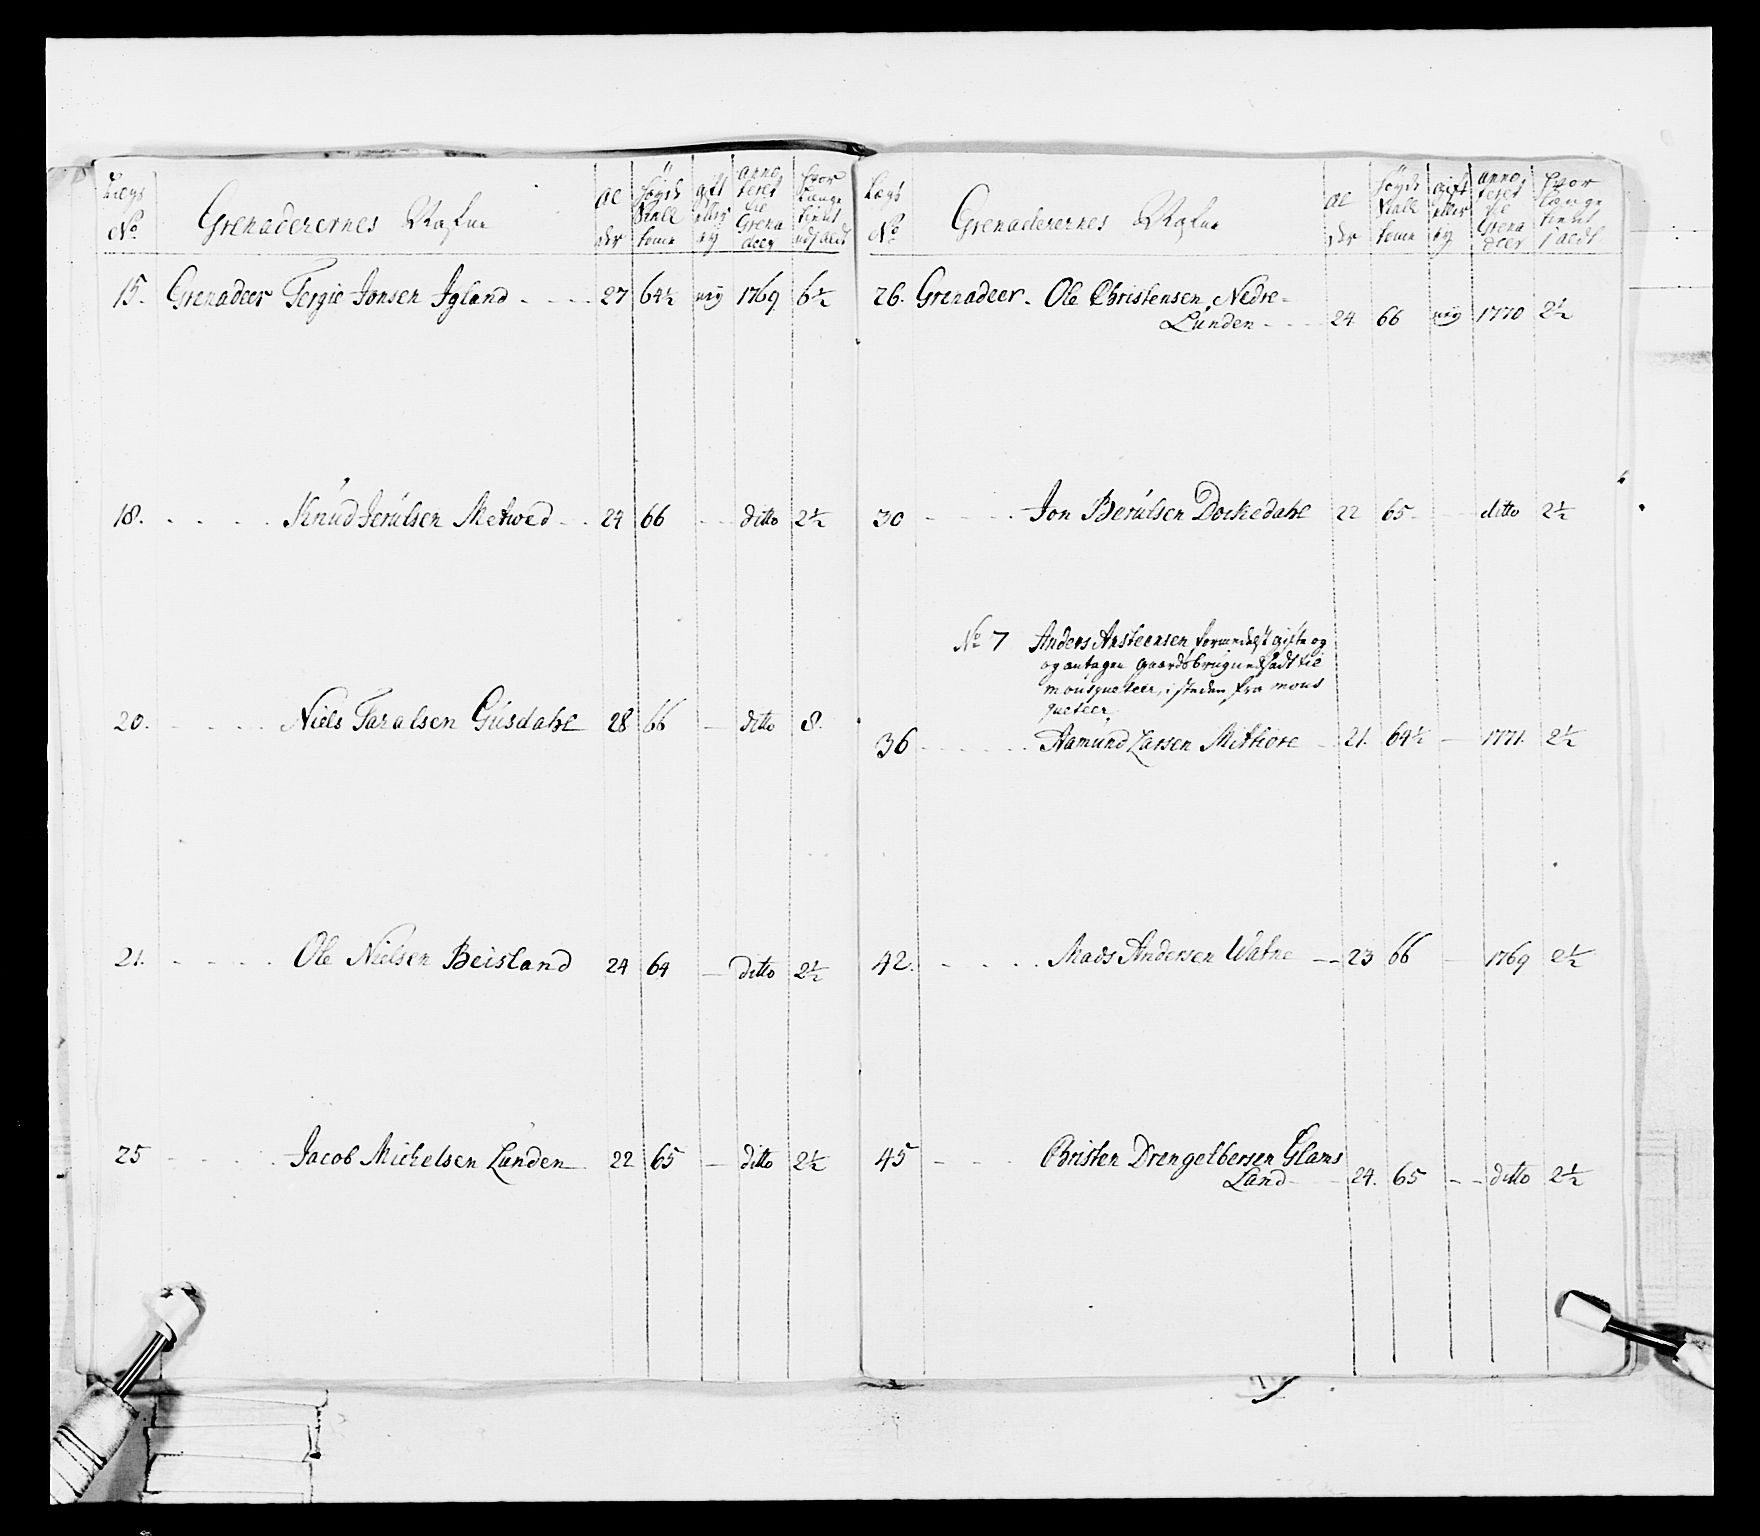 Lægs No Grenaderernes Nafne al der Høyde Siall tome gift eller ey anno teret til Grena deer hvor længe tient udj aedt
15. Grenadeer Tergie Jonsen Igland - - - 27 64½ ney 1769 6½
18. - - - - Knud Jerulsen Metwed - - 24 66 - - ditto 2½
20. - - - - Niels Taralsen Gusdahl 28 66 - ditto 8.
21. - - - - Ole Nielsen Beisland 24 64 - ditto 2½
25 - - - - Jacob Michelsen Lunden 22 65 - ditto 2½
Lægs No Grenaderernes Nafne al der Høyde Siall tome gift eller ey anno teret til Grena deer hvor længe tient j aedt
26. Grenadeer. Ole Christensen Nedre-
Lunden - - - 24 66 ney 1770 2½
30 - - - Jon Berulsen Dockedahl 22 65 - - ditto 2½
No 7 Anders Ansteensen formedelst gifte og
og antagen gaards brug udsadt til
mousqueteer, i steden fra mous
queteer
36 - - - - Aamund Larsen - 21. 64½ - 1771. 2½
42. - - - - Mads Andersen Watne - - 23 66 - 1769 2½
45 - - - Christen Drengelbersen Glams
Land - - 24. 65 - - ditto 2½